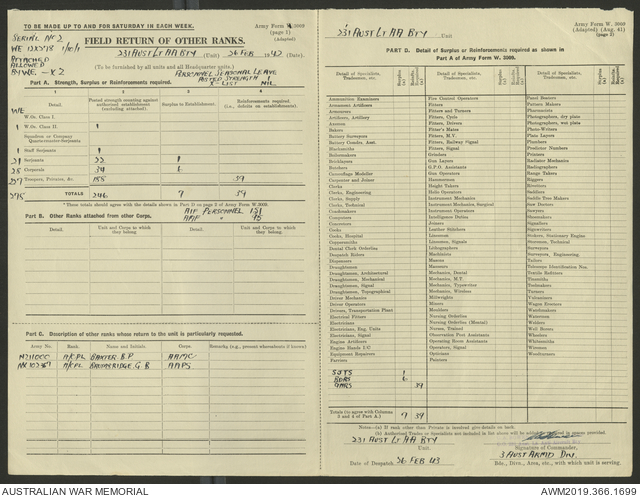 TO BE MADE UP TO AND FOR SATURDAY IN EACH WEEK.
Army Form W.3009
(page 1)
(Adapted)
SERIAL No 2
FIELD RETURN OF OTHER RANKS.
231 AUST LT AA BTY (Unit) 26 FEB 1943 (Date).
(To be furnished by all units and all Headquarter units.)
ATTACHED
ALLOWED
PERSONNEL SEASONAL LEAVE
X-LIST NIL
Part A. Strength, Surplus or Reinforcements required.
1 2 3 4
Detail.
Posted strength counting against authorized establishment (excluding attached).
Surplus to Establishment.
Reinforcements required (i.e., deficits on establishment).
WE
W.Os. Class I.
1 W.Os. Class II. 1
Squadron or Company Quarter-master-Serjeants
1 Staff Serjeants 1
Serjeants
Corporals
Troopers, Privates, &c. 39
TOTALS 7 39
* These totals should agree with the details shown in Part D on page 2 of Army Form W.3009.
Part B. Other Ranks attached from other Corps.
AIF PERSONNEL 131
Unit and Corps to which they belong
Unit and Corps to which they belong
Part C. Description of other ranks whose return to the unit is particularly requested.
Army No.
Rank.
Name and Initials.
Corps.
Remarks (e.g., present whereabouts if known)
A/CPL BAXTER B P AAMC
A/CPL G B AAPS
231 AUST LT AA BTY Unit
Army Form W. 3009
(Adapted) (Aug. 41)
(page 2)
PART D. Detail of Surplus or Reinforcements required as shown in Part A of Army Form W. 3009.
Detail of Specialists, Tradesmen, etc.
Surplus
Reinfts. Required
Ammunition Examiners
Armament Artificers
Armourers
Artificers, Artillery
Axemen
Bakers
Battery Surveyors
Blacksmiths
Boilermakers
Bricklayers
Butchers
Camouflage Modeller
Carpenter and Joiner
Clerks
Clerks, Engineering
Clerks, Supply
Clerks, Technical
Coachmakers
Computers
Cooks
Cooks, Hospital
Coppersmiths
Dental Clerk Orderlies
Despatch Riders
Dispensers
Draughtsmen
Draughtsmen, Architectural
Draughtsmen, Mechanical
Draughtsmen, Signal
Draughtsmen, Topographical
Driver Mechanics
Driver Operators
Drivers, Transportation Plant
Electricians
Electricians, Eng. Units
Electricians, Signal
Engine Artificers
Engine Hands I/C
Equipment Repairers
Farriers
Fire Control Operators
Fitters
Fitters and Turners
Fitters, Cycle
Fitters, Drivers
Fitter's Mates
Fitters, M.V.
Fitters, Railway Signal
Fitters, Signal
Grinders
Gun Layers
Gun Operators
Hammermen
Height Takers
Hello Operators
Instrument Mechanics
Instrument Mechanics, Surgical
Instrument Operators
Intelligence Duties
Joiners
Leather Stitchers
Linesmen
Linesmen, Signals
Lithographers
Machinists
Masons
Masseurs
Mechanics, Dental
Mechanics, M.T.
Mechanics, Typewriter
Mechanics, Wireless
Millwrights
Miners
Moulders
Nursing Orderlies
Nursing Orderlies (Mental)
Nurses, Trained
Observation Post Assistants
Operating Room Assistants
Operators, Signal
Opticians
Painters
Panel Beaters
Pattern Makers
Pharmacists
Photographers, dry plate
Photographers, wet plate
Photo-Writers
Plate Layers
Plumbers
Predictor Numbers
Printers
Radiator Mechanics
Radiographers
Range Takers
Riggers
Rivetters
Saddlers
Saddle Tree Makers
Saw Doctors
Sawyers
Shoemakers
Signallers
Signwriters
Stokers, Stationary Engine
Storemen, Technical
Surveyors
Surveyors, Engineering
Tailors
Telescope Identification Nos.
Testers
Textile Refitters
Tinsmiths
Toolmakers
Turners
Vulcanizers
Wagon Erectors
Watchmakers
Watermen
Welders
Well Borers
Wheelwrights
Whitesmiths
Wiremen
Woodturners
SJTS 1
BDRS 6
GNRS 39
Totals (to agree with Columns 3 and 4 of Part A.) 7 39
Notes:—(a) If rank other than Private is involved give details on back.
(b) Authorized Trades or Specialists not included in list above will be added as required in spaces provided.
231 AUST LT AA BTY
Unit
Signature of Commander.
3 AUST ARMD DIV.
Bde., Divn., Area, etc., with which unit is serving.
Date of Despatch 26 FEB 43
AUSTRALIAN WAR MEMORIAL
AWM2019.366.1699